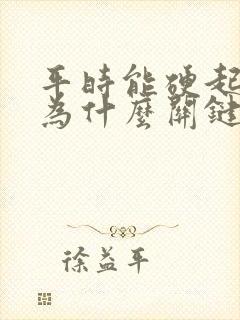 平時能硬起
為什麼關鍵
徐益平